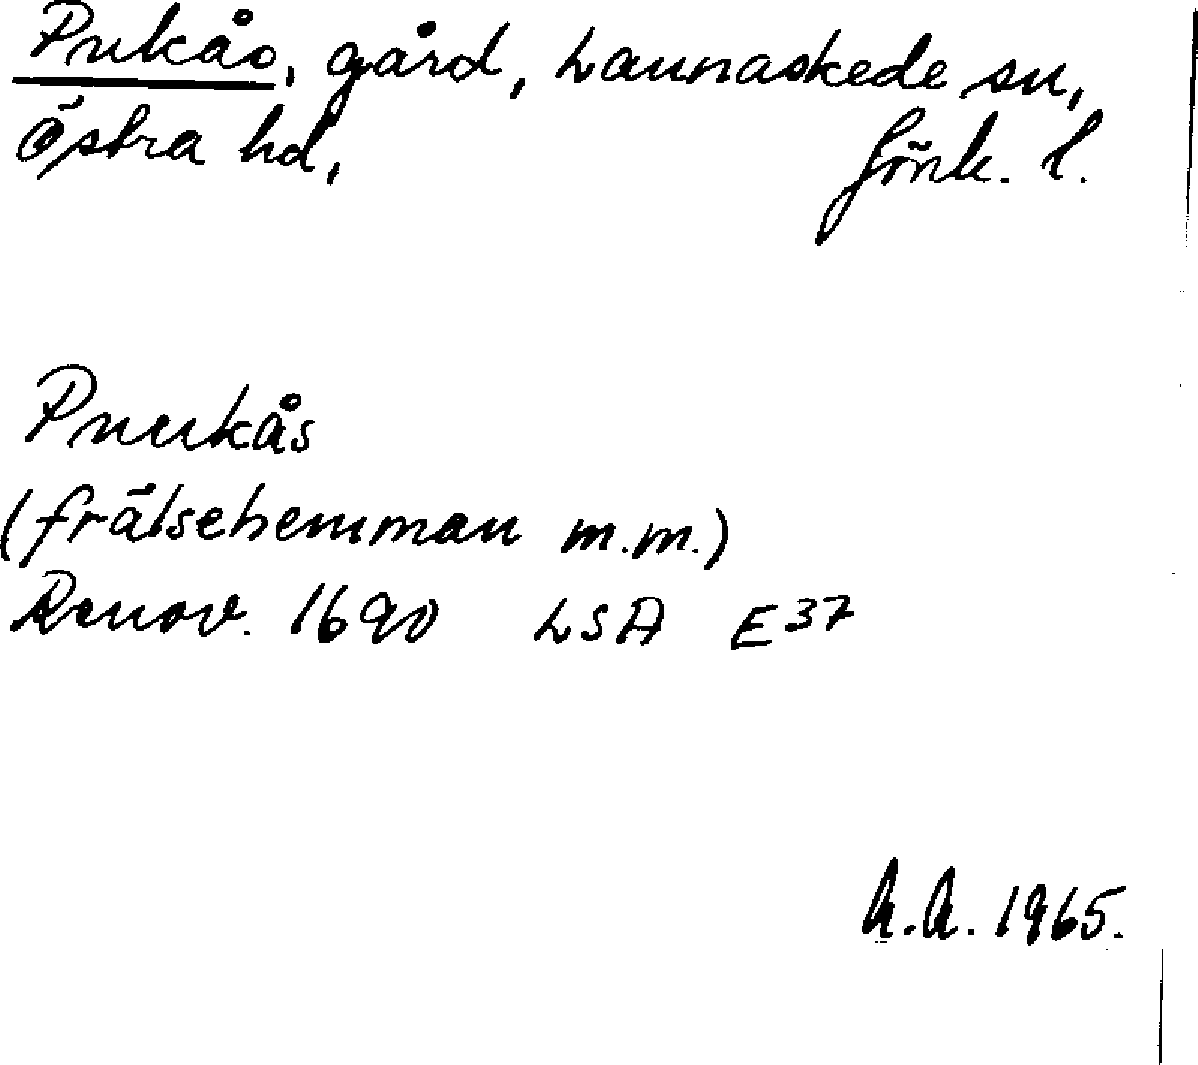 Pukås, gård, Lannaskede sn,
Östra hd, Jönk. l.
Puukås
(frälsehemman m.m.)
Renov. 1690 LSA E37
A.A. 1965.